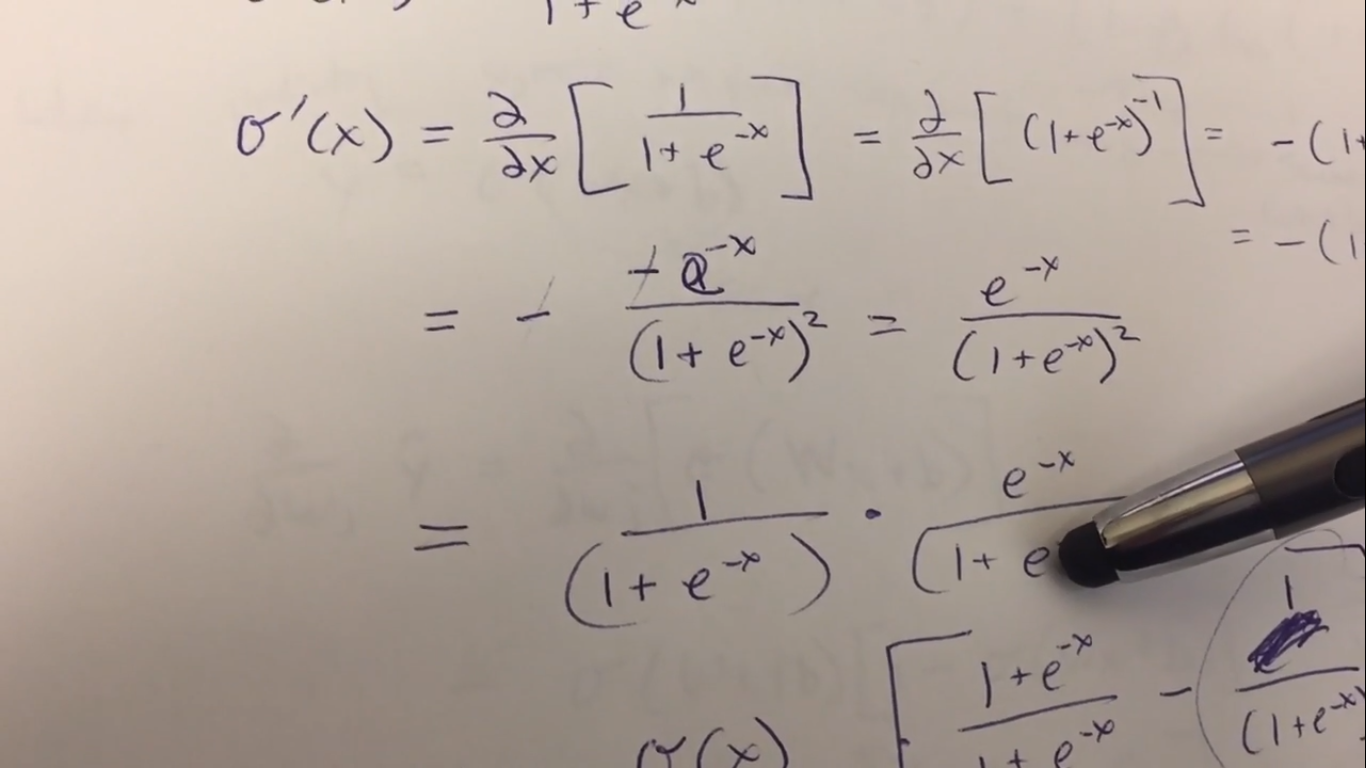 1 + e^-x
σ'(x) = ∂/∂x [ 1/(1+e^-x) ] = ∂/∂x [ (1+e^-x)^-1 ] = -(1+
= -(1
= - -e^-x/(1+e^-x)^2 = e^-x/(1+e^-x)^2
= 1/(1+e^-x) · e^-x/(1+e
σ(x) [ (1+e^-x)/(1+e^-x) - 1/(1+e^-x)